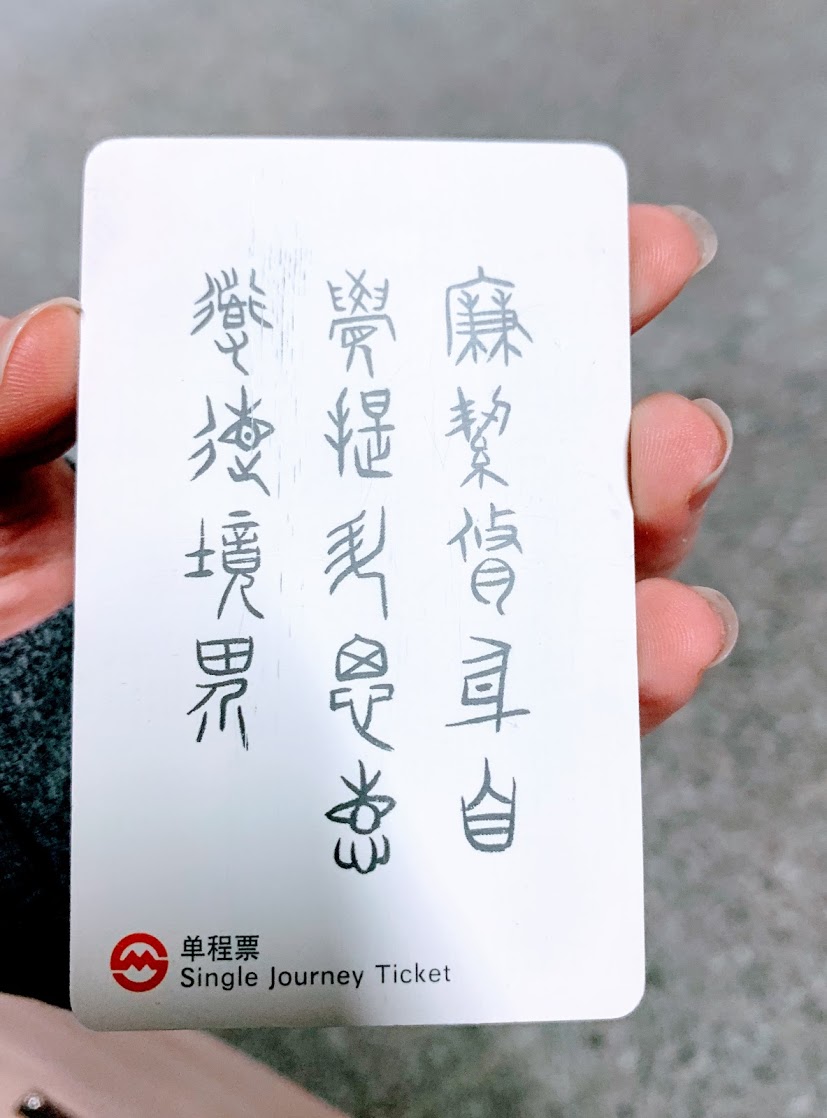 廉絜脩身自
覺提升思想
道德境界
单程票
Single Journey Ticket